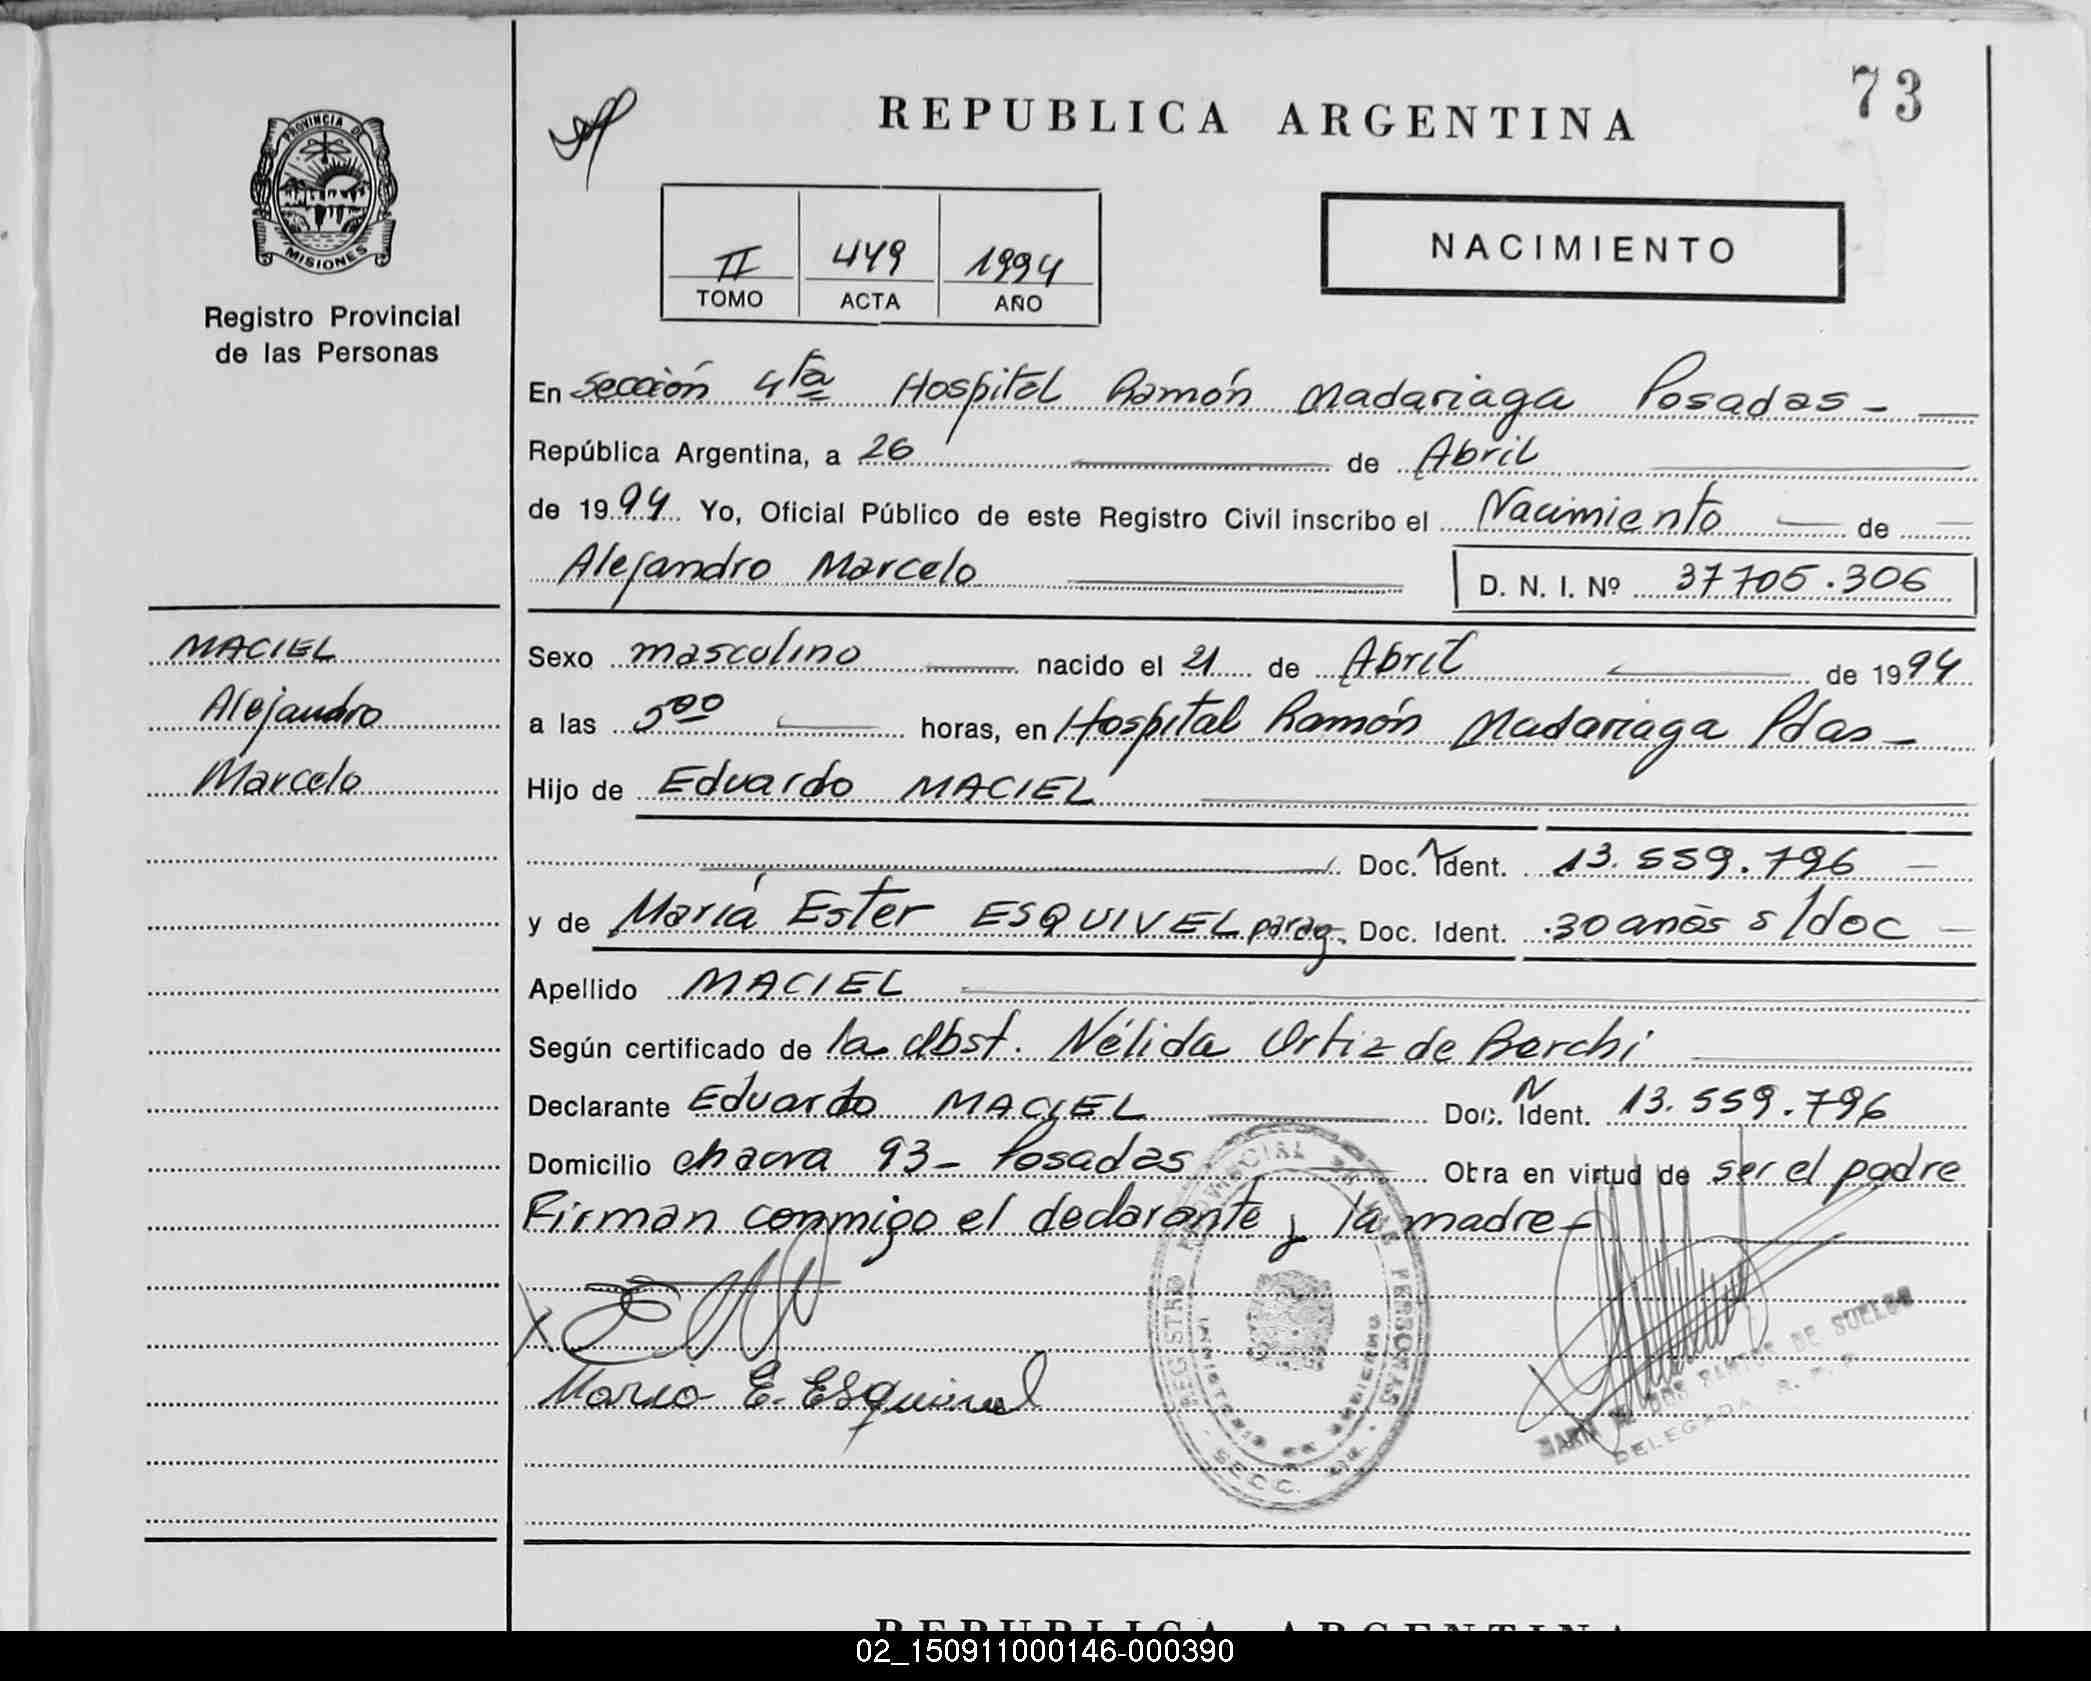 73
REPUBLICA ARGENTINA
PROVINCIA DE
MISIONES
Registro Provincial
de las Personas
II 449 1994
TOMO ACTA AÑO
NACIMIENTO
En Sección 4ta Hospital Ramón Madariaga Posadas -
República Argentina, a 26 de Abril
de 1994 Yo, Oficial Público de este Registro Civil inscribo el Nacimiento de
Alejandro Marcelo D. N. I. Nº 37705.306
MACIEL
Alejandro
Marcelo
Sexo masculino nacido el 21 de Abril de 1994
a las 5 00 horas, en Hospital Ramón Madariaga Pdas -
Hijo de Eduardo MACIEL
Doc. N Ident. 13.559.796 -
y de María Ester ESQUIVEL parag. Doc. Ident. 30 años s/doc -
Apellido MACIEL
Según certificado de la Obst. Nélida Ortiz de Berchi
Declarante Eduardo MACIEL Doc. N Ident. 13.559.796
Domicilio chacra 93 - Posadas Obra en virtud de ser el padre
Firman conmigo el declarante y la madre -
X
Maria E. Esquivel
REGISTRO PROVINCIAL DE LAS PERSONAS
SECC.
DE SUELDO
DELEGADA R. P. P.
REPUBLICA ARGENTINA
02_150911000146-000390